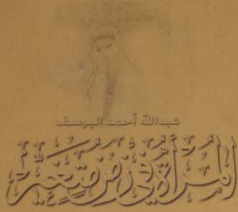 عبدالله أحمد اليوسف
المرأة في زمن متغير